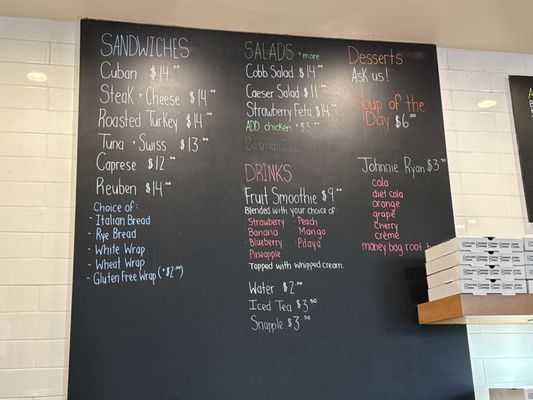 SANDWICHES
Cuban $14.00
Steak + Cheese $14.00
Roasted Turkey $14.00
Tuna + Swiss $13.00
Caprese $12.00
Reuben $14.00
Choice of:
- Italian Bread
- Rye Bread
- White Wrap
- Wheat Wrap
- Gluten Free Wrap (+$2.00)
SALADS + more
Cobb Salad $14.00
Caeser Salad $11.00
Strawberry Feta $14.00
ADD chicken +$3.00
DRINKS
Fruit Smoothie $9.00
Blended with your choice of:
Strawberry · Peach
Banana · Mango
Blueberry · Pitaya
Pineapple
Topped with whipped cream.
Water $2.00
Iced Tea $3.50
Snapple $3.50
Desserts
Ask us!
Soup of the
Day $6.00
Johnnie Ryan $3.50
cola
diet cola
orange
grape
cherry
crème
money bag root b